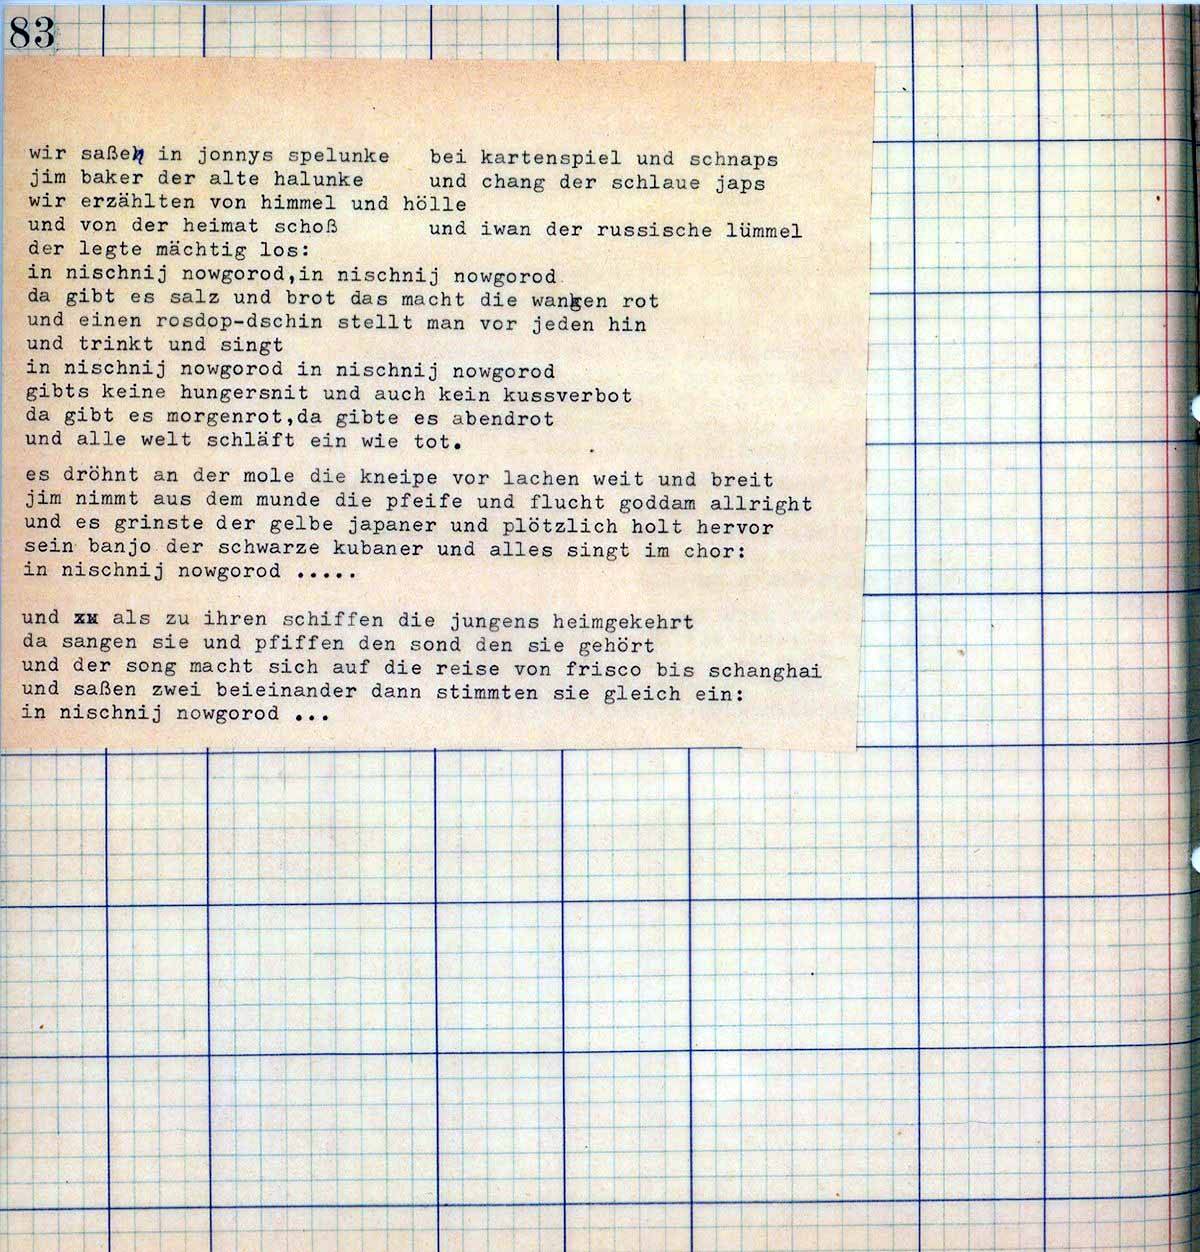 83
wir saßen in jonnys spelunke   bei kartenspiel und schnaps
jim baker der alte halunke   und chang der schlaue japs
wir erzählten von himmel und hölle
und von der heimat schoß   und iwan der russische lümmel
der legte mächtig los:
in nischnij nowgorod,in nischnij nowgorod
da gibt es salz und brot das macht die wangen rot
und einen rosdop-dschin stellt man vor jeden hin
und trinkt und singt
in nischnij nowgorod in nischnij nowgorod
gibts keine hungersnit und auch kein kussverbot
da gibt es morgenrot,da gibte es abendrot
und alle welt schläft ein wie tot.
es dröhnt an der mole die kneipe vor lachen weit und breit
jim nimmt aus dem munde die pfeife und flucht goddam allright
und es grinste der gelbe japaner und plötzlich holt hervor
sein banjo der schwarze kubaner und alles singt im chor:
in nischnij nowgorod .....
und xx als zu ihren schiffen die jungens heimgekehrt
da sangen sie und pfiffen den sond den sie gehört
und der song macht sich auf die reise von frisco bis schanghai
und saßen zwei beieinander dann stimmten sie gleich ein:
in nischnij nowgorod ...